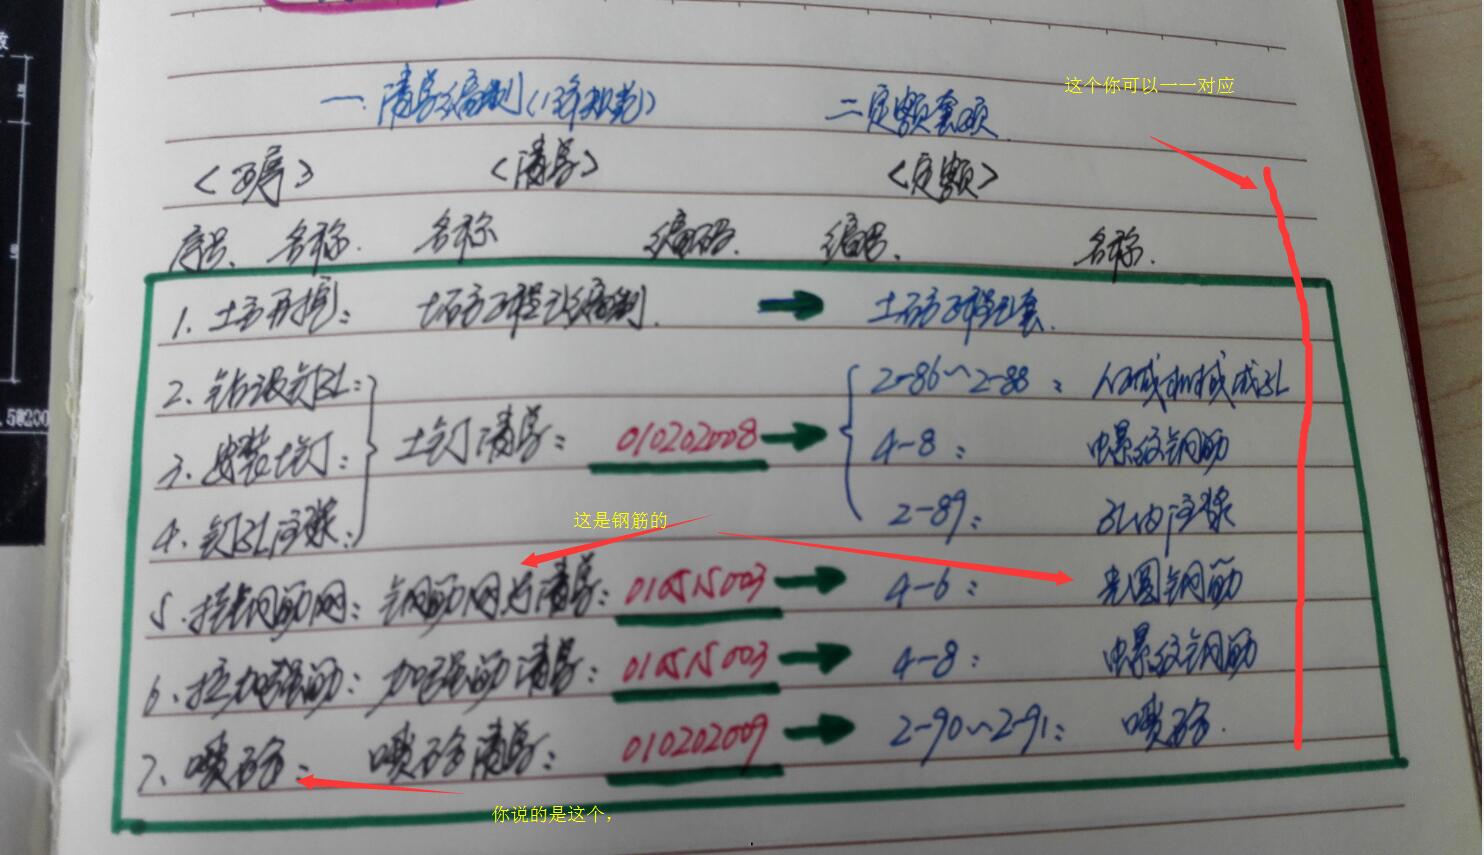 这个你可以一一对应
一.清单编制(13年规范) 二.定额套项
<工序> <清单> <定额>
序号. 名称. 名称 编码. 编号. 名称.
1. 土方开挖: 土石方工程已编制. 土石方工程已套.
2. 钻设钉孔: 2-86~2-88: 人工成孔机械成孔
3. 安装土钉: 土钉清单: 010202008 4-8: 螺纹钢筋
4. 钉孔注浆: 2-89: 孔内注浆
这是钢筋的
5. 挂钢筋网: 钢筋网片清单: 010515003 4-6: 光圆钢筋
6. 拉加强筋: 加强筋清单: 010515003 4-8: 螺纹钢筋
7. 喷砼: 喷砼清单: 010202009 2-90~2-91: 喷砼.
你说的是这个，
.5@200